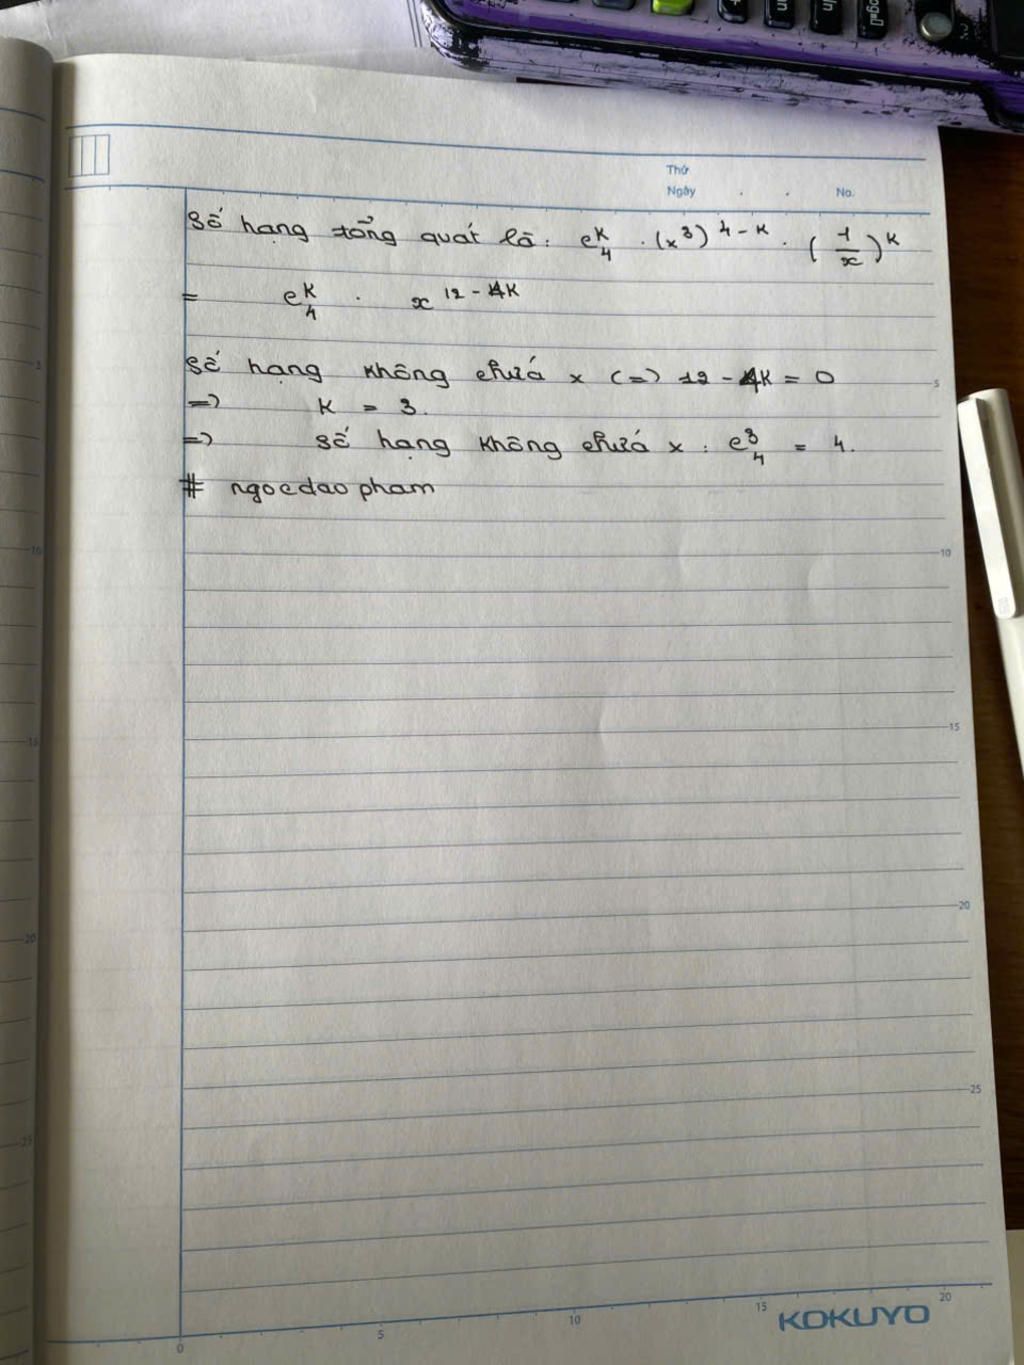 Thứ
Ngày . . No.
Số hạng tổng quát là: C₄ᵏ . (x³)⁴⁻ᵏ . (1/x)ᵏ
= C₄ᵏ . x¹²⁻⁴ᵏ
Số hạng không chứa x (=) 12 - 4K = 0
=) K = 3.
=) Số hạng không chứa x : C₄³ = 4.
# ngocdaopham
KOKUYO